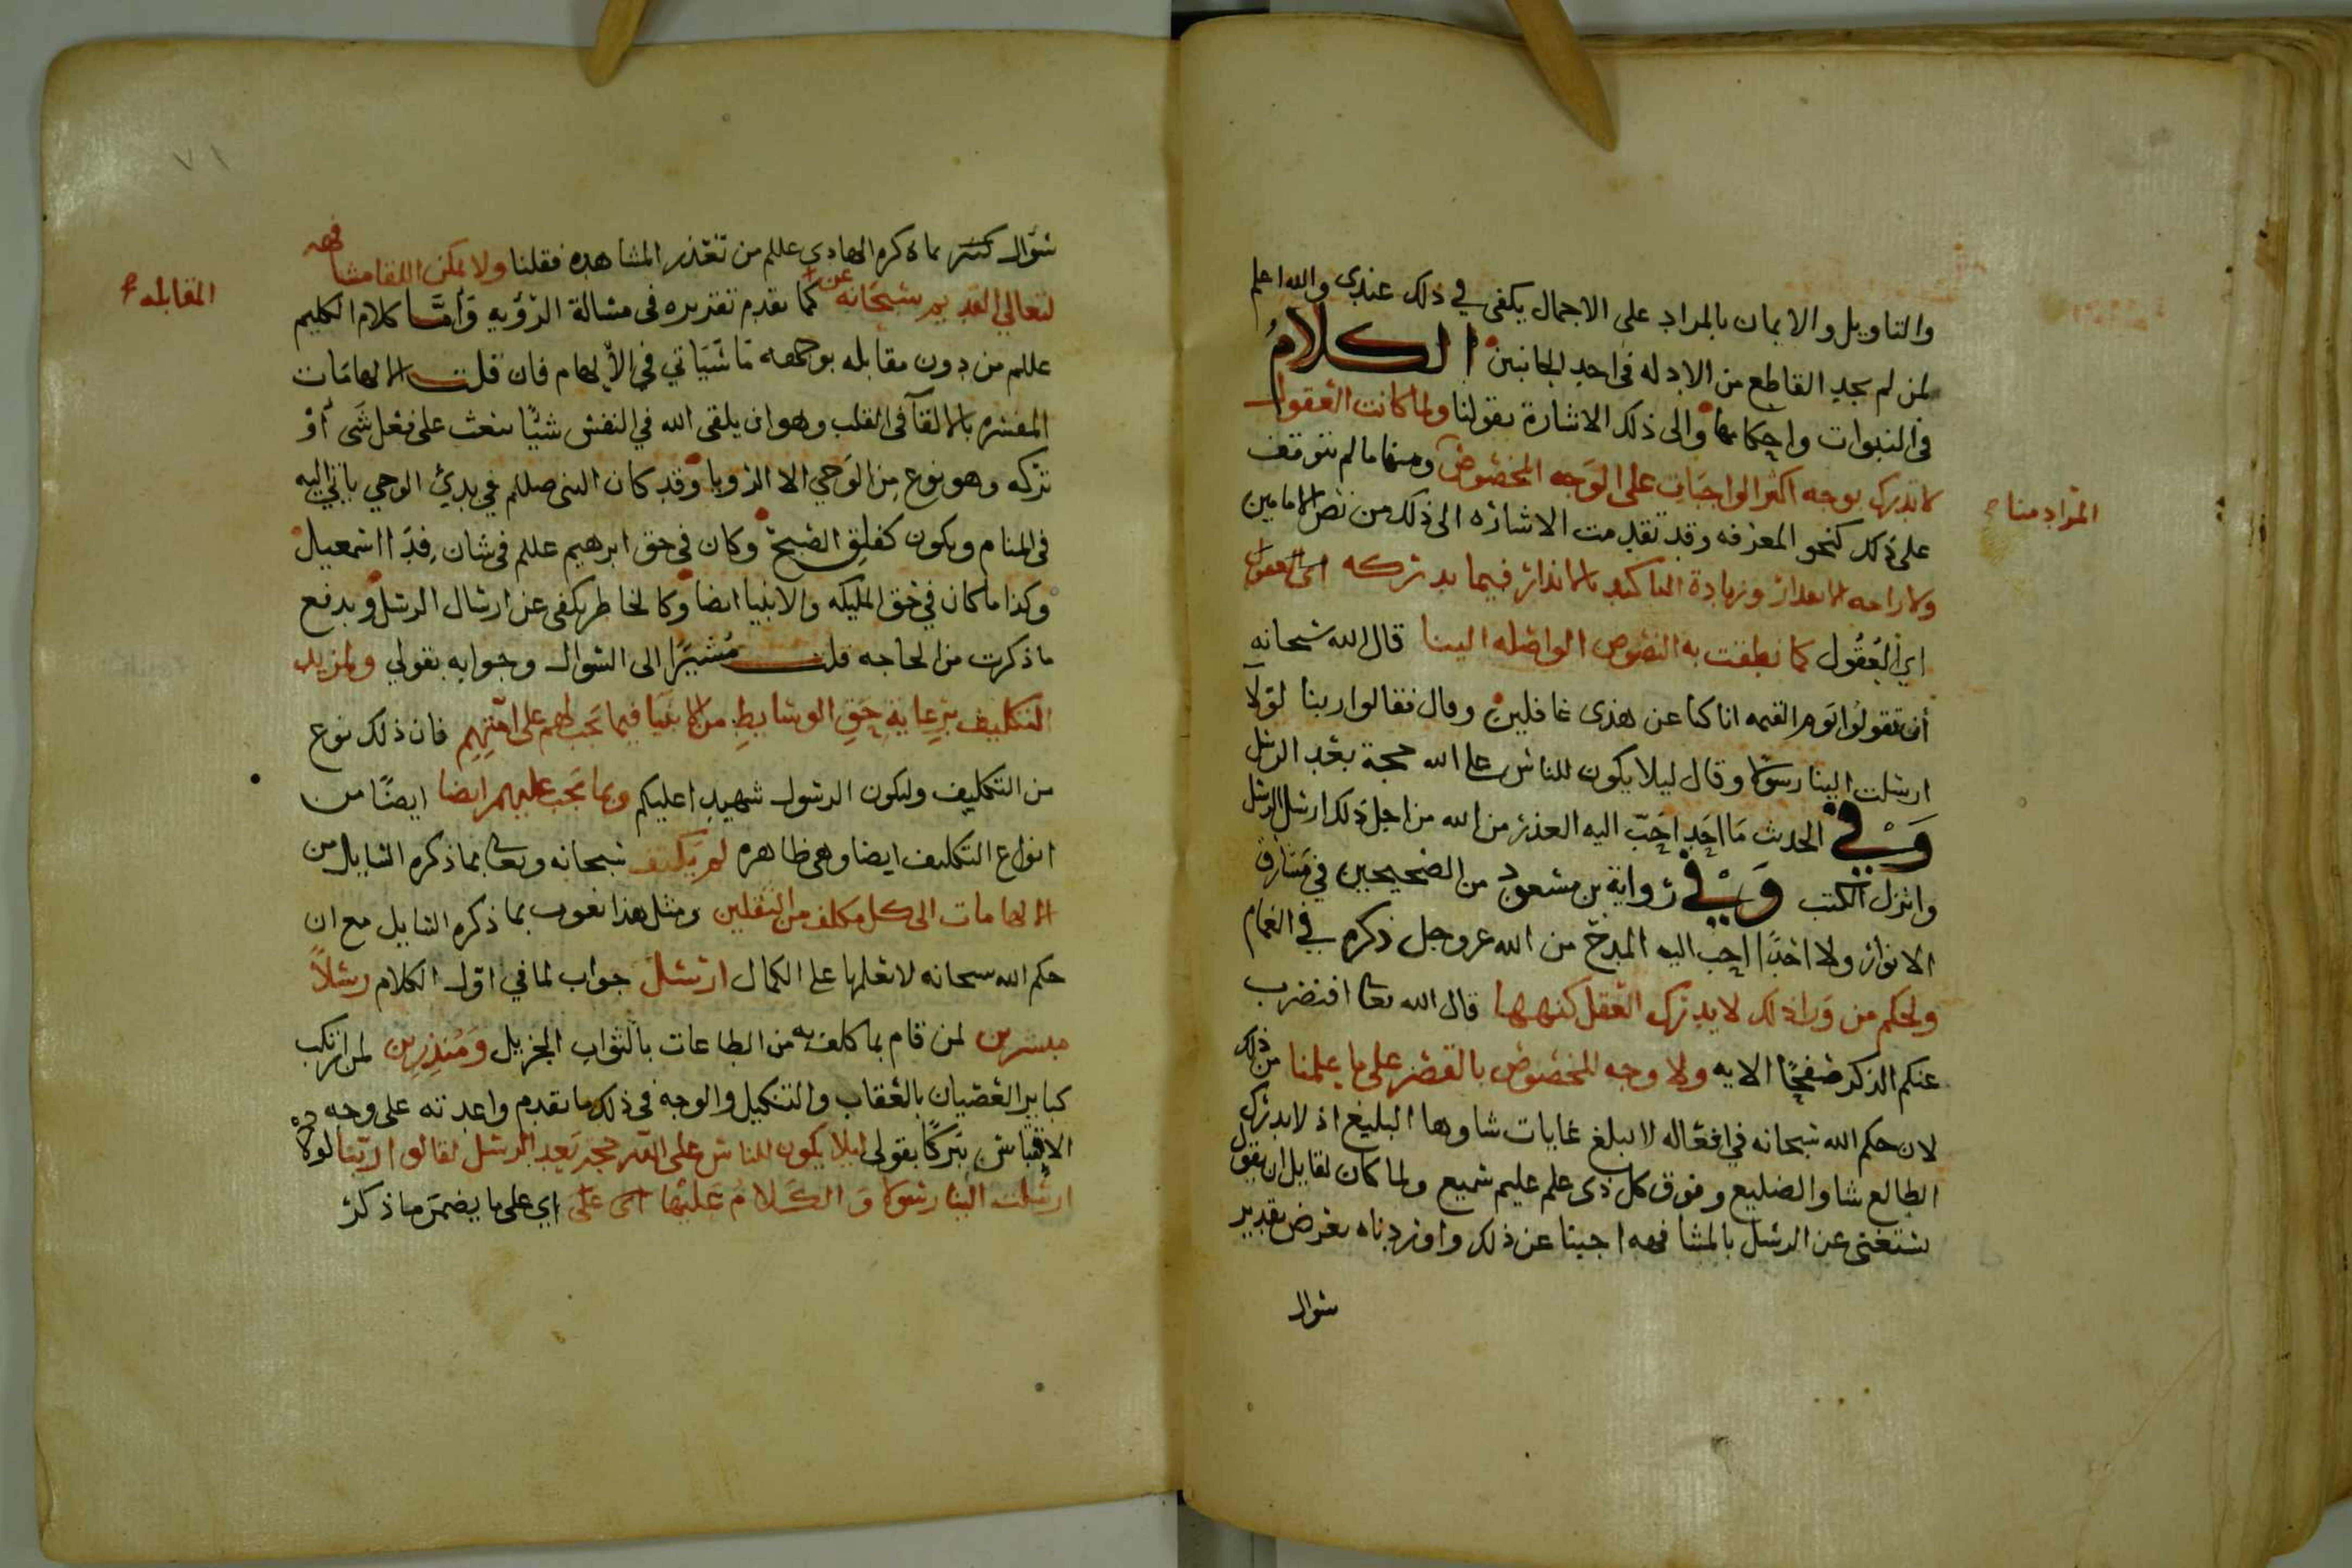 والتاويل والايمان بالمراد على الاجمال يكفى في ذلك عندى والله اعلم
لمن لم يجد القاطع من الادله فى احد الجانبين الكلام
فى النبوات واحكامها والى ذلك الاشارة بقولنا ولما كانت العقول
لا تدرك بوجه اكثر الواجبات على الوجه المخصوص ومنها ما لم يتوقف
المراد منا
على ذلك كنحو المعرفه وقد تقدمت الاشاره الى ذلك من نص الامامين
ولازاحه الاعذار وزيادة التاكيد بالانذار فيما يدركه
اي العقول كما نطقت به النصوص الواصله الينا قال الله سبحانه
أن تقولوا يوم القيمه انا كنا عن هذى غافلين وقال فقالوا ربنا لولا
ارسلت الينا رسولا وقال ليلا يكون للناس على الله حجة بعد الرسل
وَفِي الحديث مَا احَد احَبّ اليه العذر من الله من اجل ذلك ارسل الرسل
وانزل الكتب وَفِي رواية بن مسعود من الصحيحين في مشارق
الانوار ولا احَدًا احب اليه المدح من الله عز وجل ذكره في الغمام
ولحكم من وَرا ذلك لا يدرك العقل كنهها قال الله تعالى افنضرب
عنكم الذكر صفحًا الايه ولا وجه المخصوص بالقصر على ما علمنا من ذلك
لان حكم الله سبحانه في افعاله لا يبلغ غايات شاوها البليغ اذ لا يدرك
الطالع شاو الضليع وفوق كل ذى علم عليم سميع ولما كان لقايل ان يقول
نستغنى عن الرسل بالمشافهه اجبنا عن ذلك واوردناه بفرض تقدير
سوال
٧١
سؤال كثير بما ذكره الهادى عللم من تعذر المشاهده فقلنا ولا يمكن اللقا مشافهه
المقابله
لتعالي القديم سبحَانه عن كما تقدم تقريره فى مسالة الرؤيه وَأمَّا كلام الكليم
عللم من دون مقابله بوجهه مَا سَيَاتي في الألهام فان قلت الالهامَات
المفسره بالالقآ فى القلب وهو ان يلقى الله في النفس شيئًا يبعث على فعل شَى أَوْ
تركه وهو نوع مِن الوَحي الا الرويا وَقد كان النبى صللم في بدئ الوحي ياتي اليه
فى المنام ويكون كفلق الصبح وكان فى حق ابرهيم عللم فى شان فِدَا اسمعيل
وكذا ما كان في حَق المليكه والانبيا ايضا وكالخاطر يكفى عن ارسال الرسل ويدفع
ما ذكرت من الحاجه قلت مُشيرًا الى السؤال وجوابه بقولي ولمزيد
التكليف برعاية حَقِ الوسايط من الانبيَا فيما يَجب لهم على اُمّتِهِم فان ذلك نوع
من التكليف وليكون الرسول شهيدا عليكم وبما يَجب عليهم ايضا ايضًا من
انواع التكليف ايضا وهى ظاهره لم يَكتف سبحانه وتعالى بما ذكره السايل من
الالهامات الى كل مكلف من الثقلين ومثل هذا بما ذكره السايل مع ان
حكم الله سبحانه لا نعلمها على الكمال ارسَل جواب لما في اوّل الكلام رسُلاً
مبشرين لمن قام بما كلف به من الطاعات بالثواب الجزيل وَمُنذِرِين لمن ارتكب
كباير العصيان بالعقاب والتنكيل والوجه فى ذلك ما تقدم واعدته على وجه
الاقتباس تبركًا بقولى ليلا يكون للناس على الله حجة بَعد الرسل لقالوا ربّنا لولا
ارسَلت الينا رسولا وَالكَلامُ عَليهَا اى عَلَى اي على ما يضمَن ما ذكر